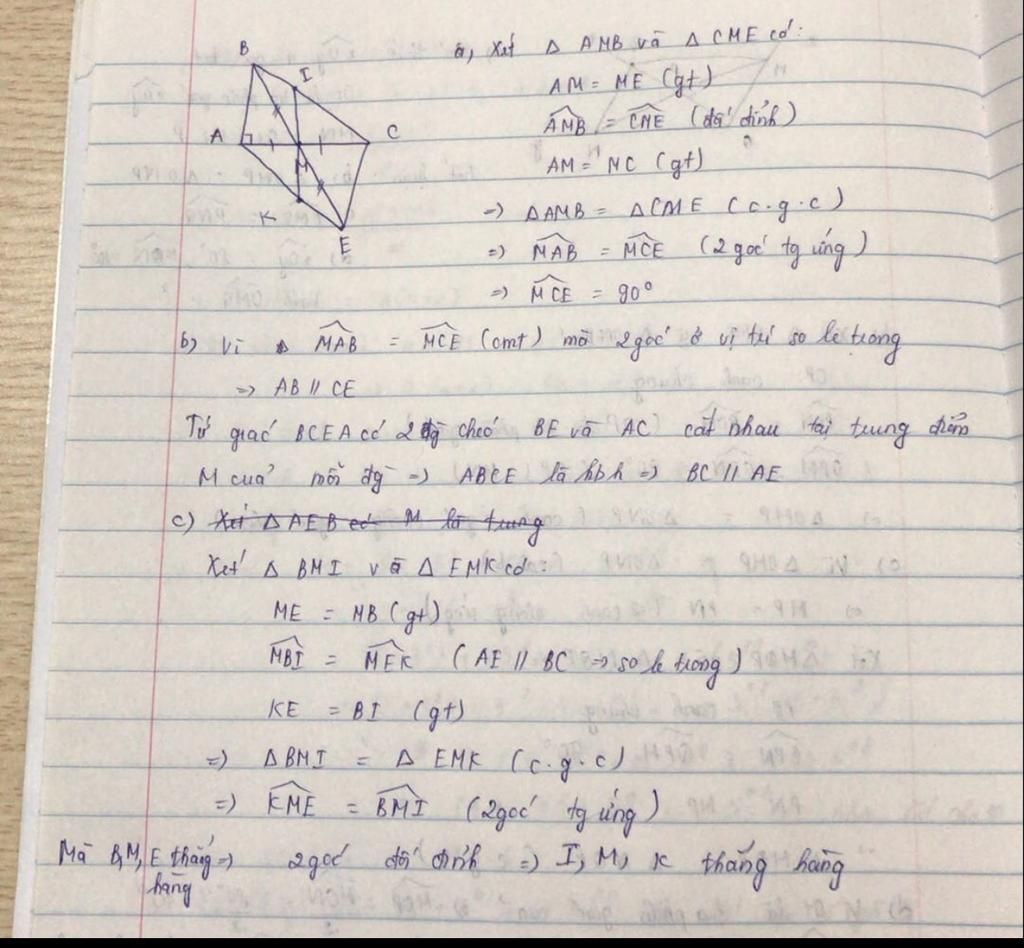 B
I
A
C
M
K
E
a, Xét Δ AMB và Δ CME có:
AM = ME (gt)
AMB = CME (đối đỉnh)
AM = MC (gt)
=) ΔAMB = ΔCME (c.g.c)
=) MAB = MCE (2 goć tg ứng)
=) MCE = 90°
b) Vì MAB = MCE (cmt) mà 2 goć ở vị trí so le trong
=) AB // CE
Tứ giać BCEA có 2 đg cheó BE và AC cắt nhau tại trung điểm
M cuả mỗi đg =) ABCE là hbh =) BC // AE
c) Xét Δ AEB có M là trung
Xét Δ BMI và Δ EMK có:
ME = MB (gt)
MBI = MEK (AE // BC => so le trong)
KE = BI (gt)
=) ΔBMI = Δ EMK (c.g.c)
=) KME = BMI (2 goć tg ứng)
Mà B,M,E thẳng =) 2 goć đối đỉnh =) I, M, K thẳng hàng
hàng